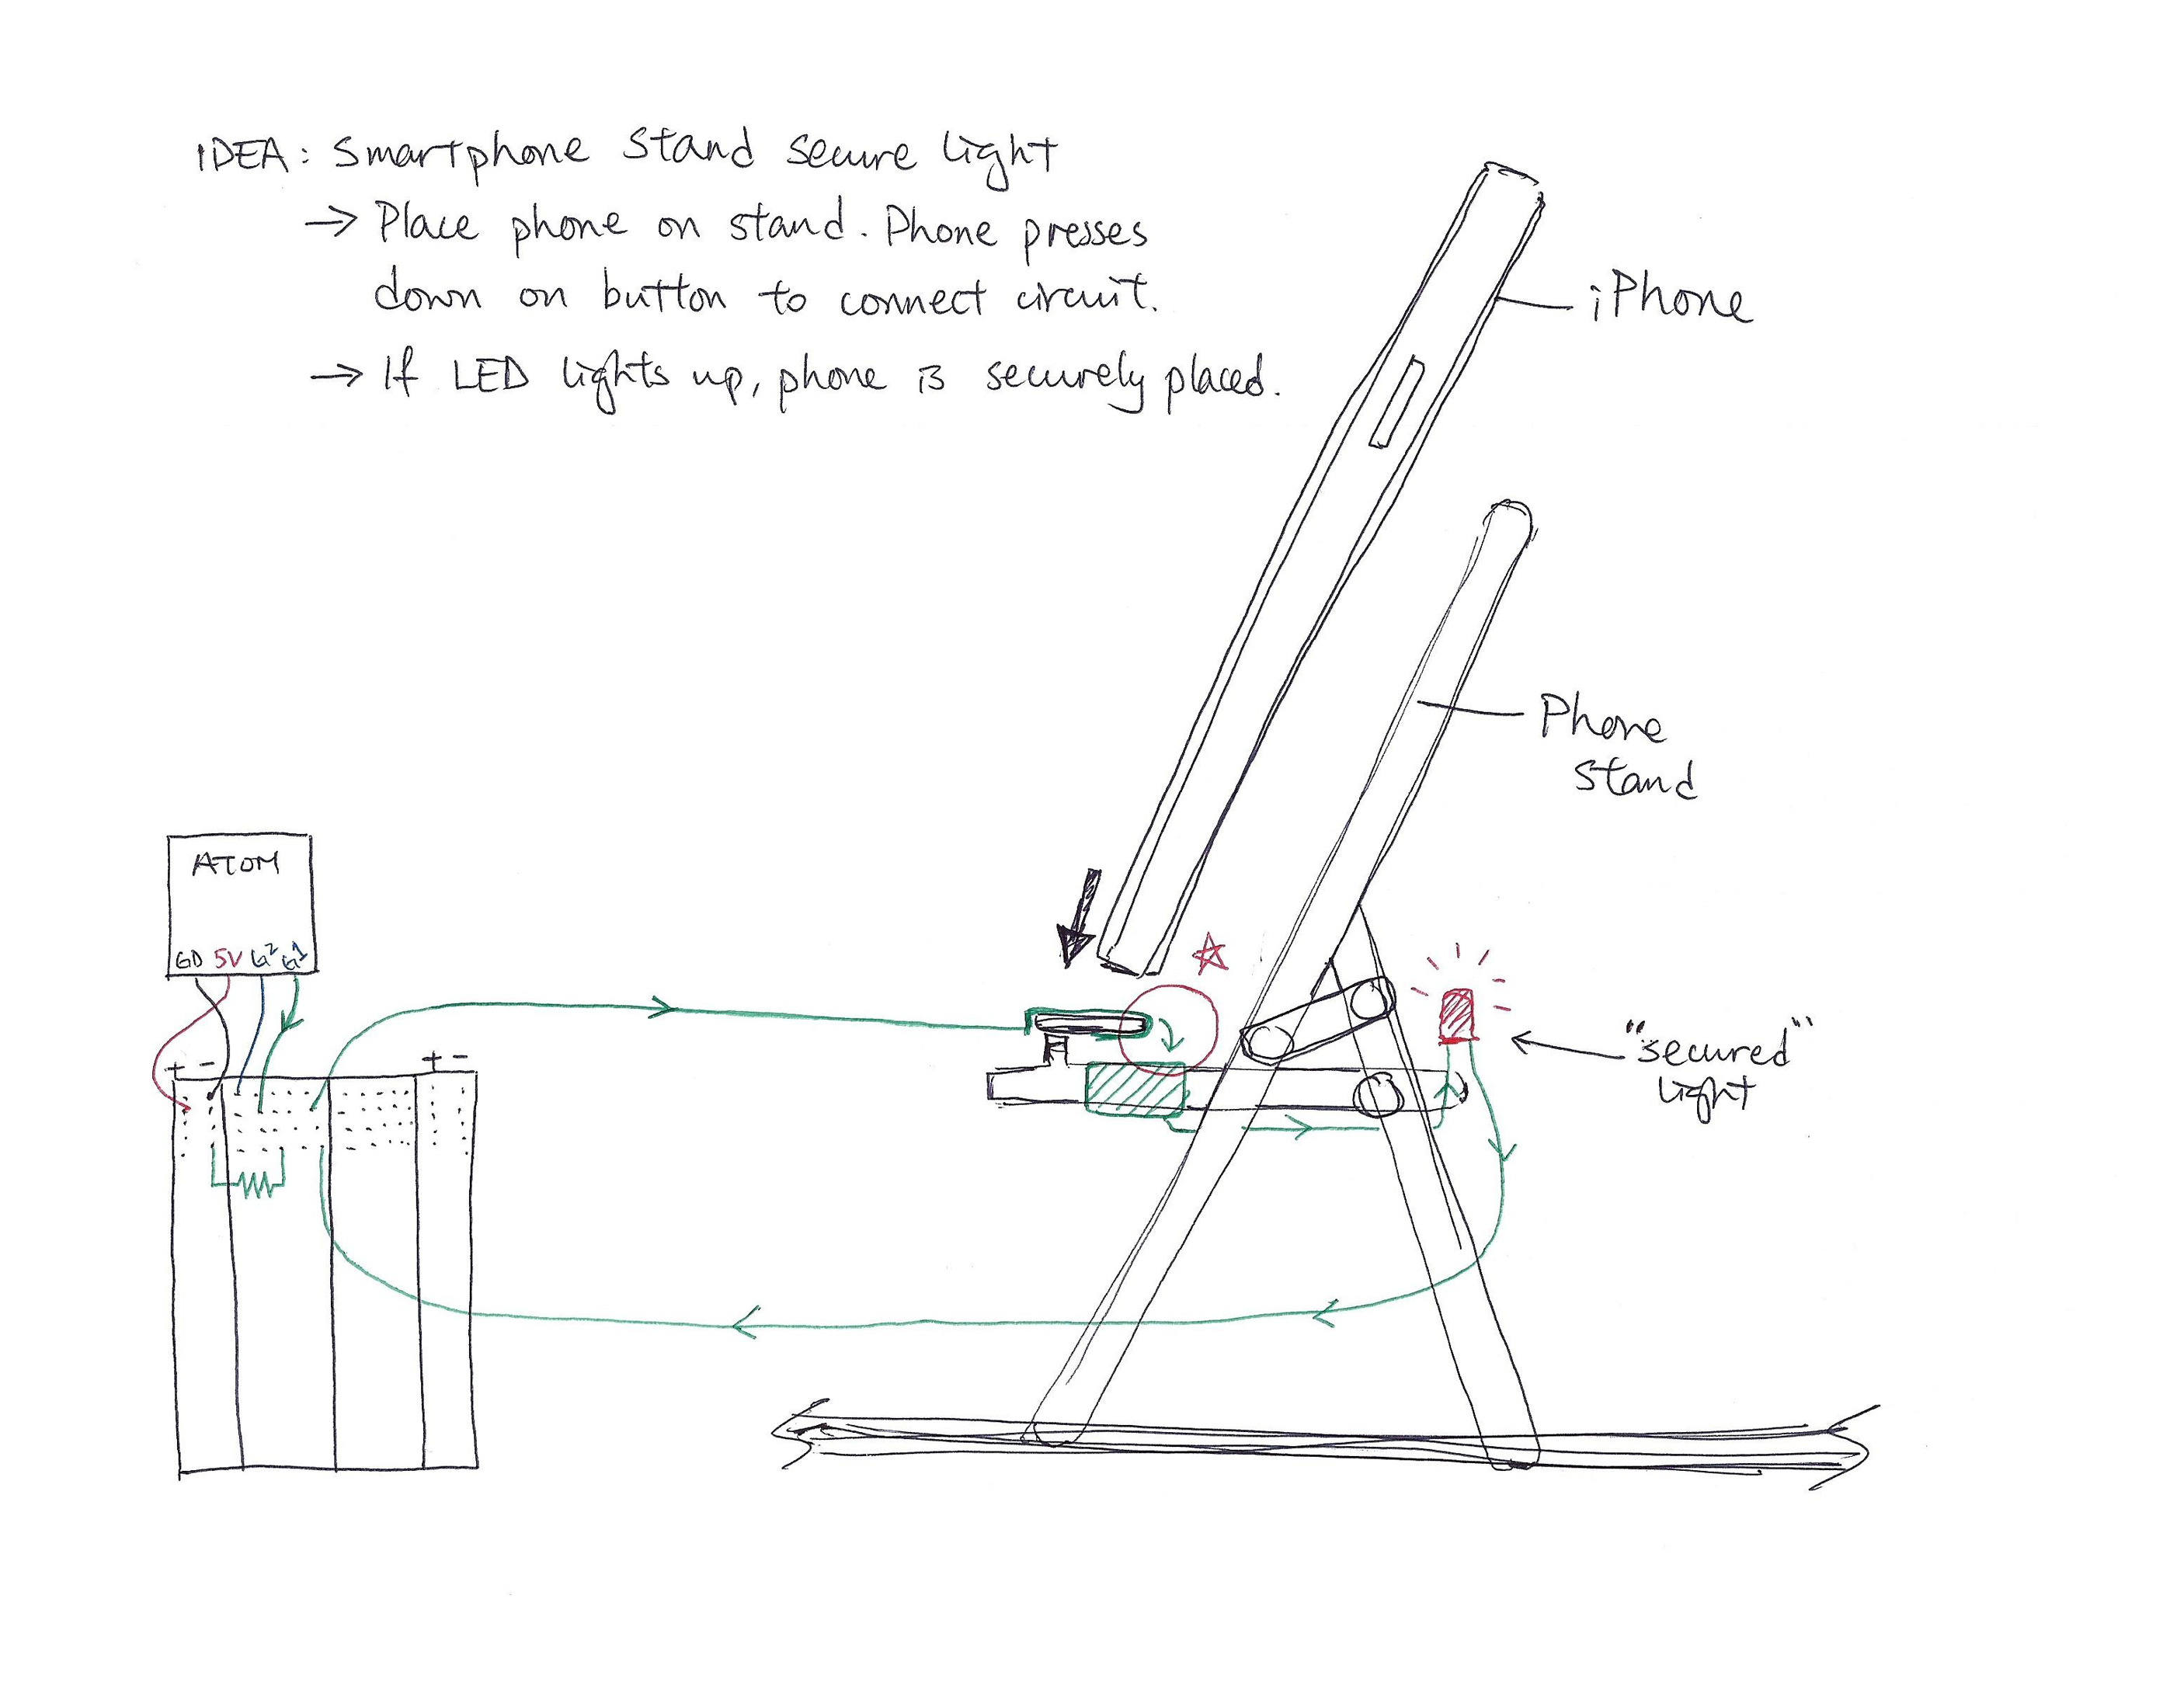 IDEA: Smartphone stand secure light
→ Place phone on stand. Phone presses
down on button to connect circuit.
→ If LED lights up, phone is securely placed.
iPhone
Phone
stand
ATOM
GD 5V G2 G1
+ -
+ -
"secured"
light